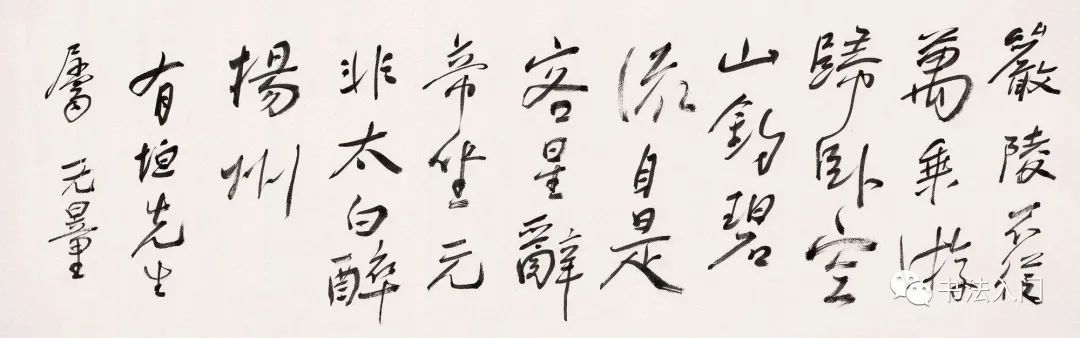 嚴陵不從
萬乘游
歸卧空
山釣碧
流自是
客星辭
帝坐元
非太白醉
揚州
有垣先生
屬 无量
书法入门